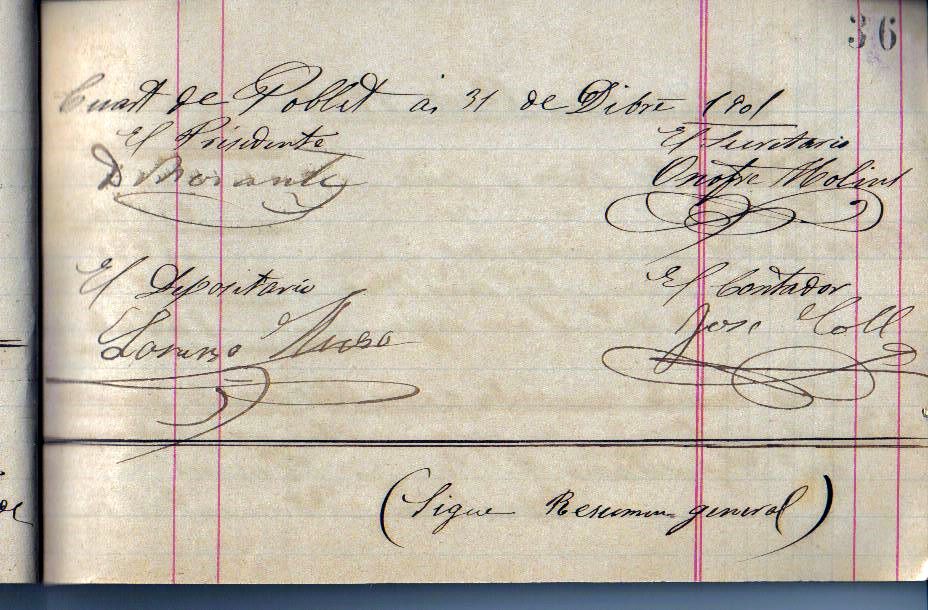 36
Cuart de Poblet a 31 de Dibre 1901
El Presidente
El Secretario
D Morante
Onofre Molins
El Depositario
El Contador
Lorenzo
Jose Coll
(Sigue Resumen general)